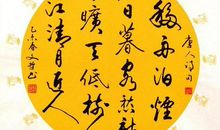 移舟泊煙
日暮客愁新
曠天低樹
江清月近人
唐人詩句
乙未春文